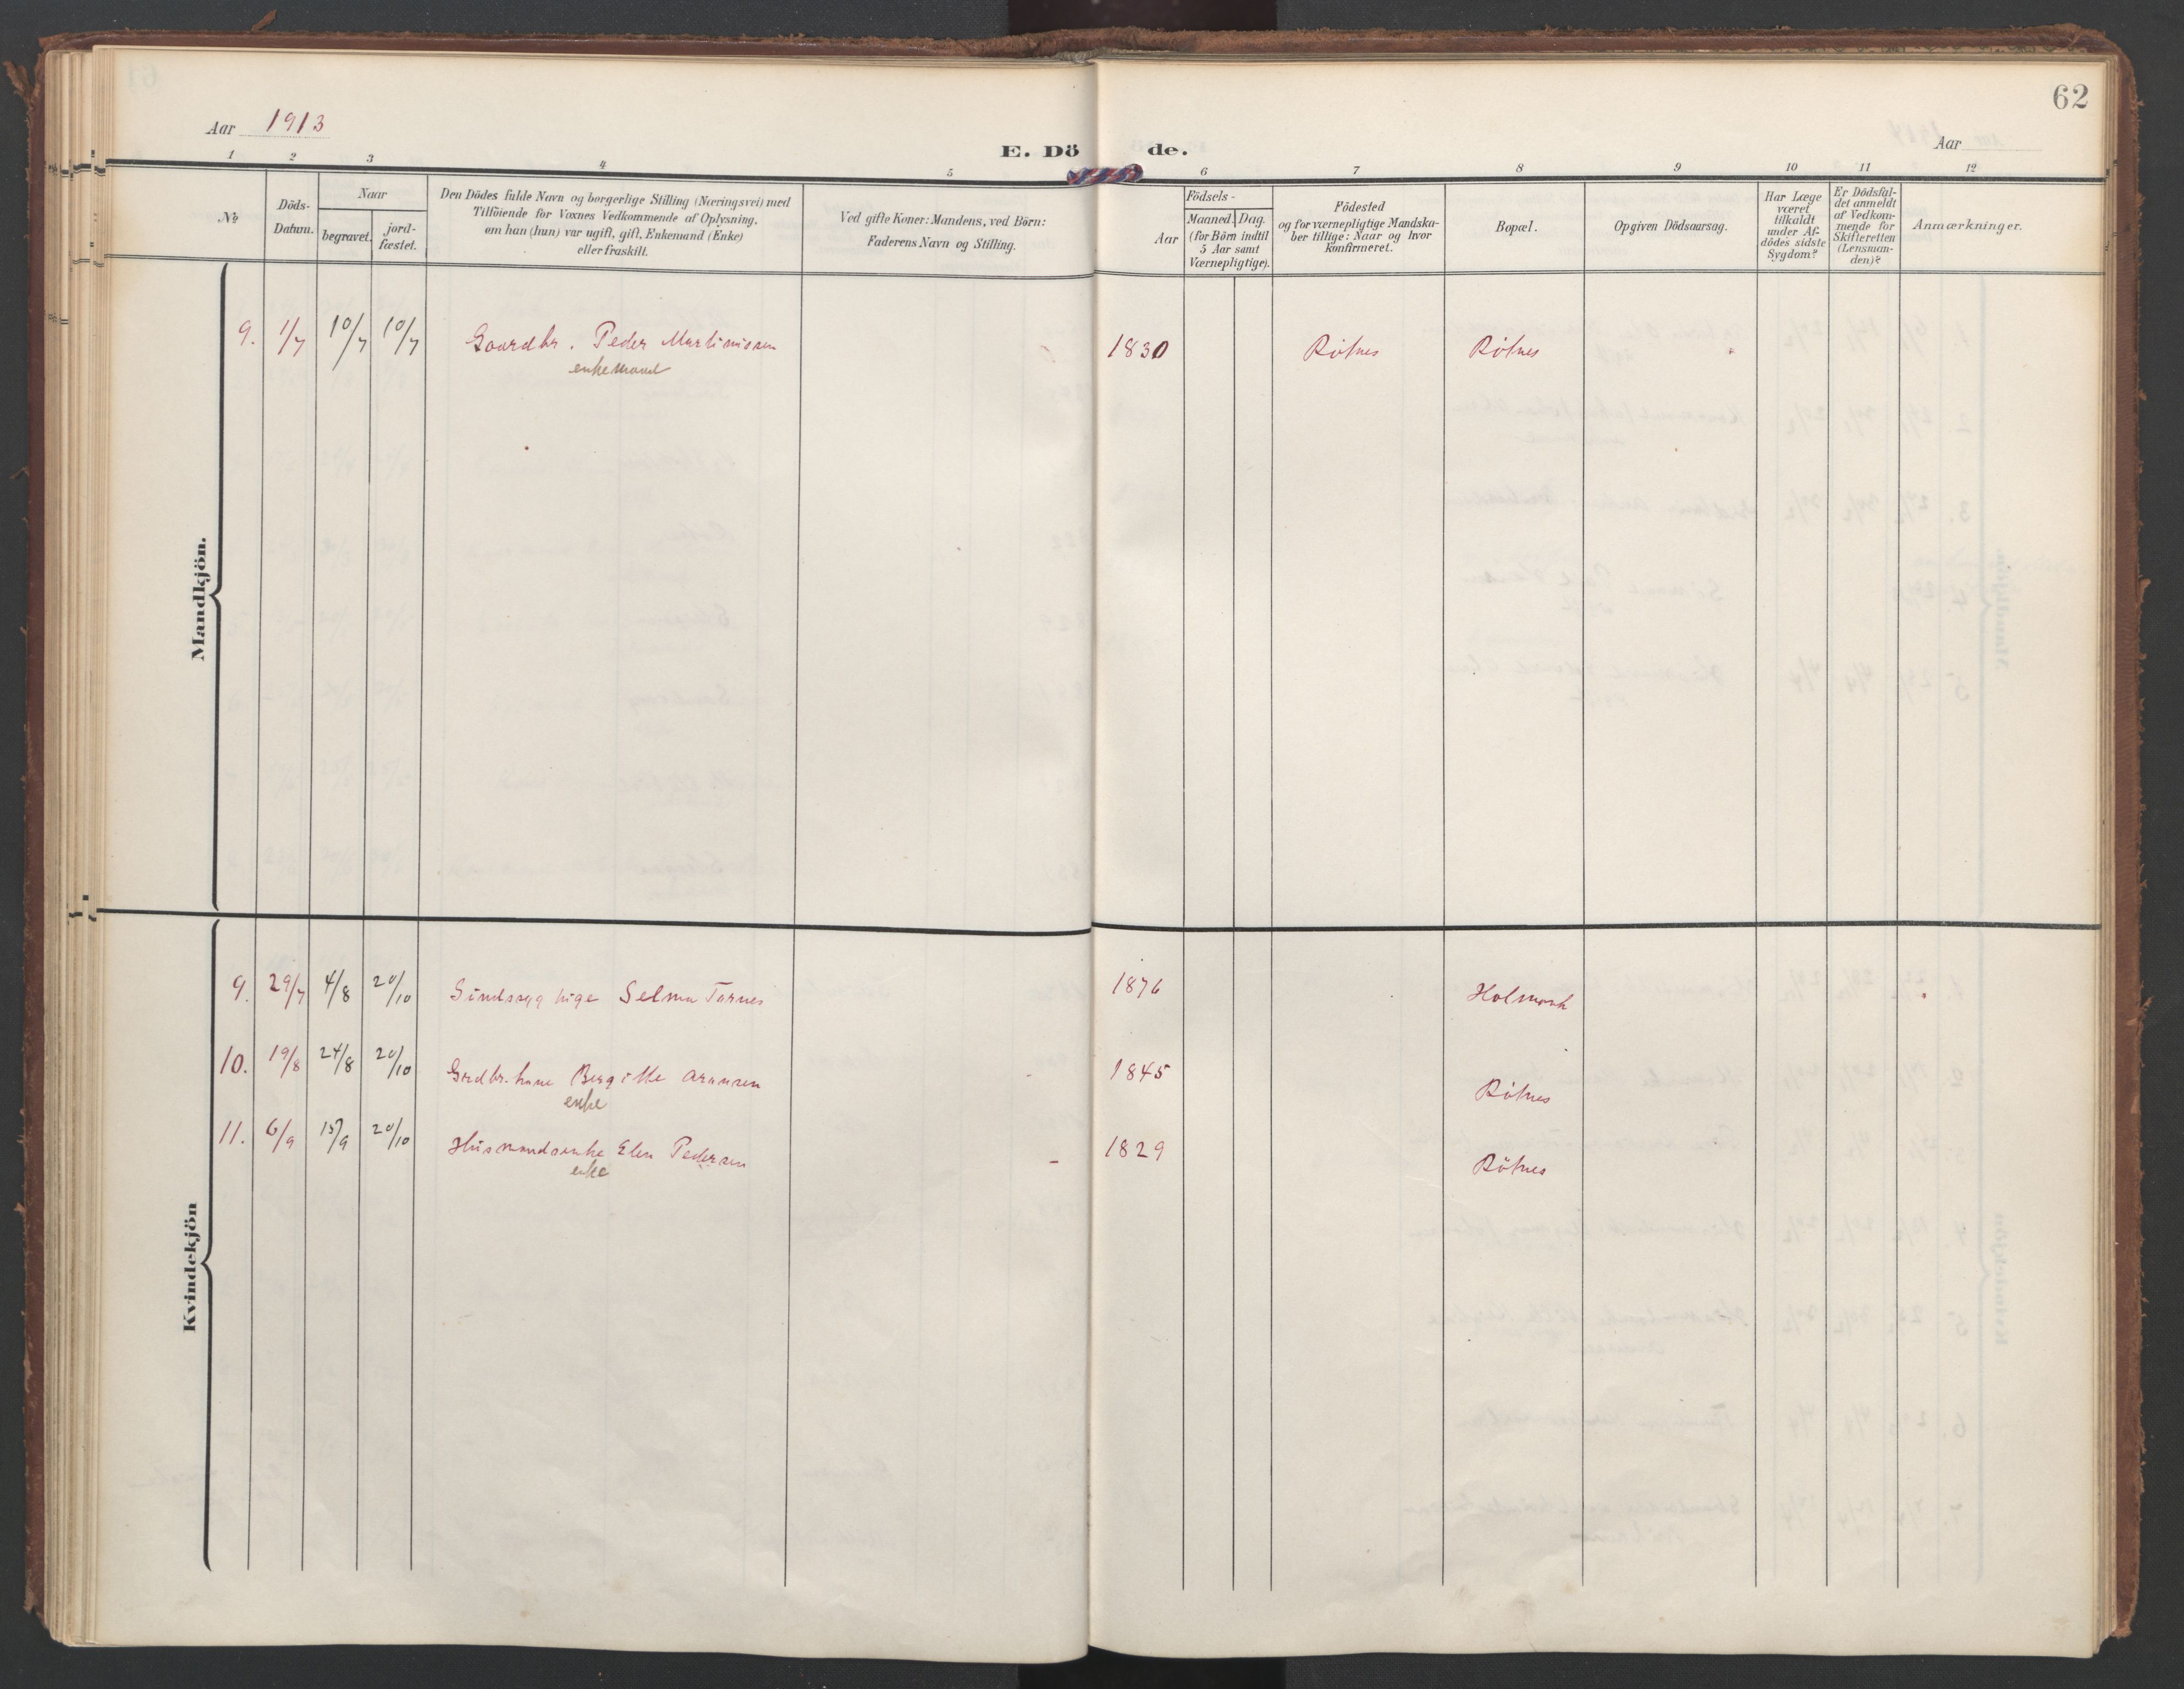 62
Aar 1913
Aar
E. Dö de.
1 2 3 4 5 6 7 8 9 10 11 12
№
Döds-
Datum.
Naar
begravet.
jord-
fæstet.
Den Dödes fulde Navn og borgerlige Stilling (Næringsvei) med
Tilföiende for Voxnes Vedkommende af Oplysning,
om han (hun) var ugift, gift, Enkemand (Enke)
eller fraskilt.
Ved gifte Koner: Mandens, ved Börn:
Faderens Navn og Stilling.
Födsels-
Aar
Maaned. Dag.
(for Börn indtil
5 Aar samt
Værnepligtige).
Födested
og for værnepligtige Mandska-
ber tillige: Naar og hvor
konfirmeret.
Bopæl.
Opgiven Dödsaarsag.
Har Læge
været
tilkaldt
under Af-
dödes sidste
Sygdom?
Er Dödsfal-
det anmeldt
af Vedkom-
mende for
Skifteretten
(Lensman-
den)?
Anmærkninger.
Mandkjön.
9. 1/7 10/7 10/7 Gaardbr. Peder Martinissen 1830 Rötnes Rötnes
enkemand
Kvindekjön
9. 29/7 4/8 20/10 Sindssyg pige Selma Tornes 1876
10. 19/8 24/8 20/10 Grdbr. kone Bergitte Aronsen 1845 Rötnes
enke
11. 6/9 15/9 20/10 Husmandsenke Elen Pedersen - 1829 Rötnes
enke